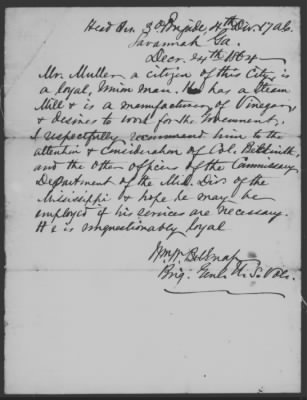 Head Qrs. 3d Brigade, 4th Div. 17 A.C.
Savannah Ga.
Decr. 24th 1864
Mr. Muller a citizen of this City, is
a loyal, Union man. He has a Steam
Mill & is a manufacturer of Vinegar,
& desires to work for the Government.
I respectfully recommend him to the
attention & Consideration of Col. Beckwith
and the other officers of the Commissary
Department of the Mil. Div. of the
Mississippi & hope he may be
employed if his services are necessary.
He is unquestionably loyal
Wm. W. Belknap
Brig. Genl. U. S. Vols.